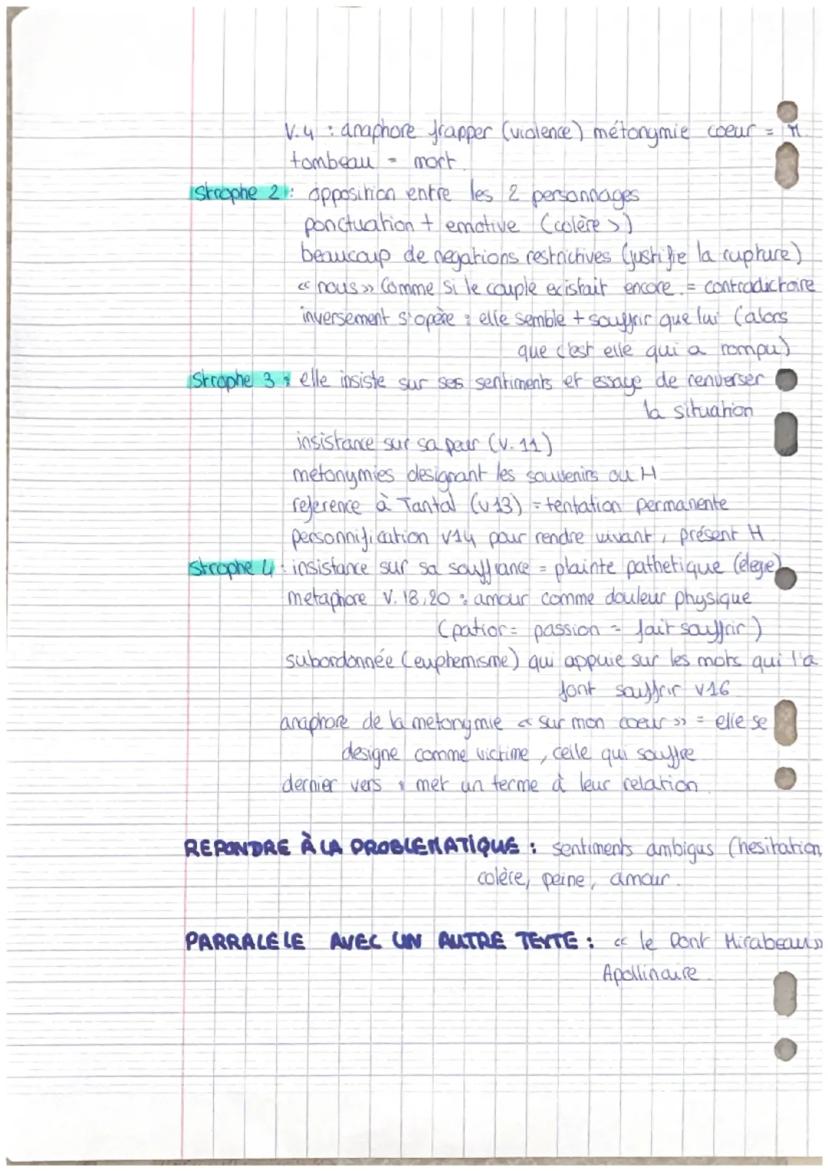 V.4 : anaphore frapper (violence) métonymie coeur =
tombeau = mort.
Strophe 2 : opposition entre les 2 personnages
ponctuation + emotive (colère >)
beaucoup de negations restrictives (justifie la rupture)
« nous » comme si le couple existait encore = contradictoire
inversement s'opère : elle semble + souffrir que lui (alors
que c'est elle qui a rompu)
Strophe 3 : elle insiste sur ses sentiments et essaye de renverser
la situation
insistance sur sa peur (v. 11)
metonymies designant les souvenirs ou H
reference à Tantal (v13) = tentation permanente
personnification v14 pour rendre vivant, présent H
Strophe 4 : insistance sur sa souffrance = plainte pathetique (élegie)
metaphore V. 18,20 : amour comme douleur physique
(patior = passion = fait souffrir)
subordonnée (euphemisme) qui appuie sur les mots qui l'a
font souffrir v16
anaphore de la metonymie « sur mon coeur » = elle se
designe comme victime, celle qui souffre
dernier vers : met un terme à leur relation
REPONDRE À LA PROBLEMATIQUE : sentiments ambigus (hesitation,
colère, peine, amour.
PARRALELE AVEC UN AUTRE TEXTE : « le Pont Mirabeau »
Apollinaire.